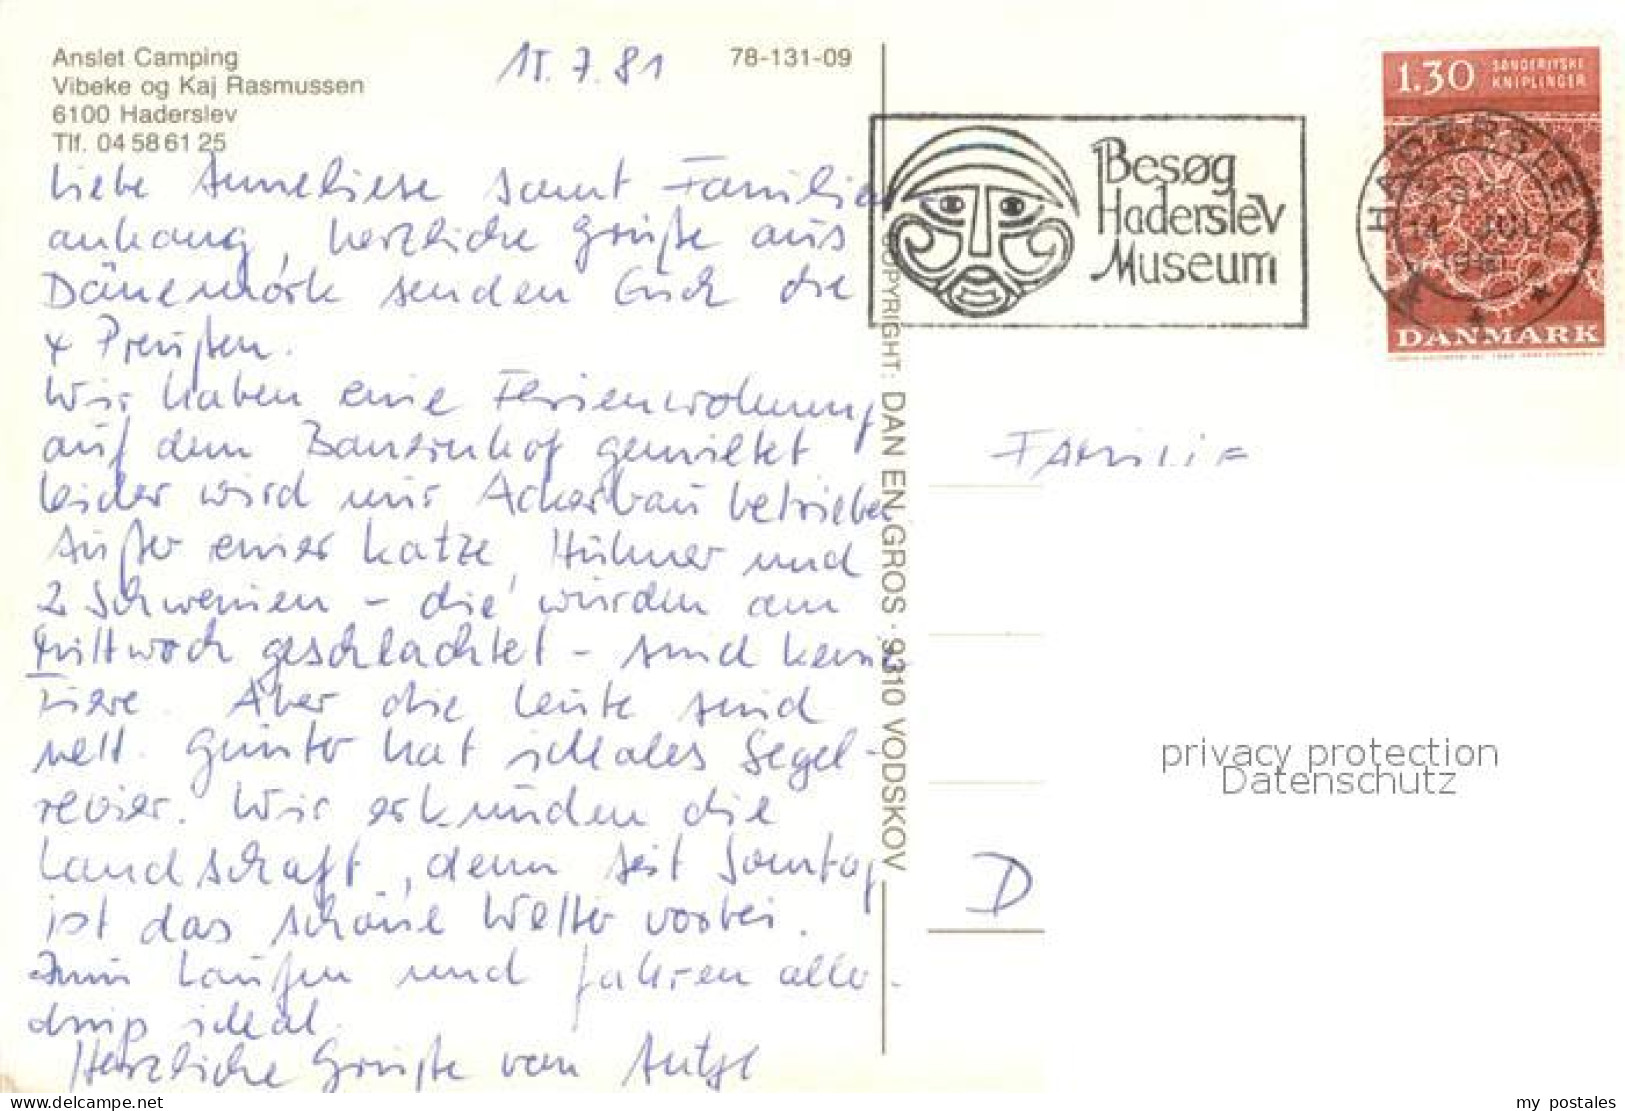 Anslet Camping
Vibeke og Kaj Rasmussen
6100 Haderslev
Tlf. 04 58 61 25
15.7.81
78-131-09
Liebe Anneliese samt Familien
anhang, herzliche Grüße aus
Dänemark senden Euch die
4 Preußen.
Wir haben eine Ferienwohnung
auf dem Bauernhof gemietet
leider wird nur Ackerbau betrieben
Außer einer Katze, Hühner und
2 Schweinen - die wurden am
Mittwoch geschlachtet - sind keine
Tiere. Aber die Leute sind
nett. Günter hat ideales Segel-
revier. Wir erkunden die
Landschaft, denn seit Sonntag
ist das schöne Wetter vorbei.
Zum Laufen und fahren aller-
dings ideal.
Herzliche Grüße von
COPYRIGHT: DAN ENGROS · 9310 VODSKOV
Besøg
Haderslev
Museum
1.30 SØNDERJYSKE
KNIPLINGER
HADERSLEV
14 JUL
1981
DANMARK
Familie
D
privacy protection
Datenschutz
my postales
www.delcampe.net